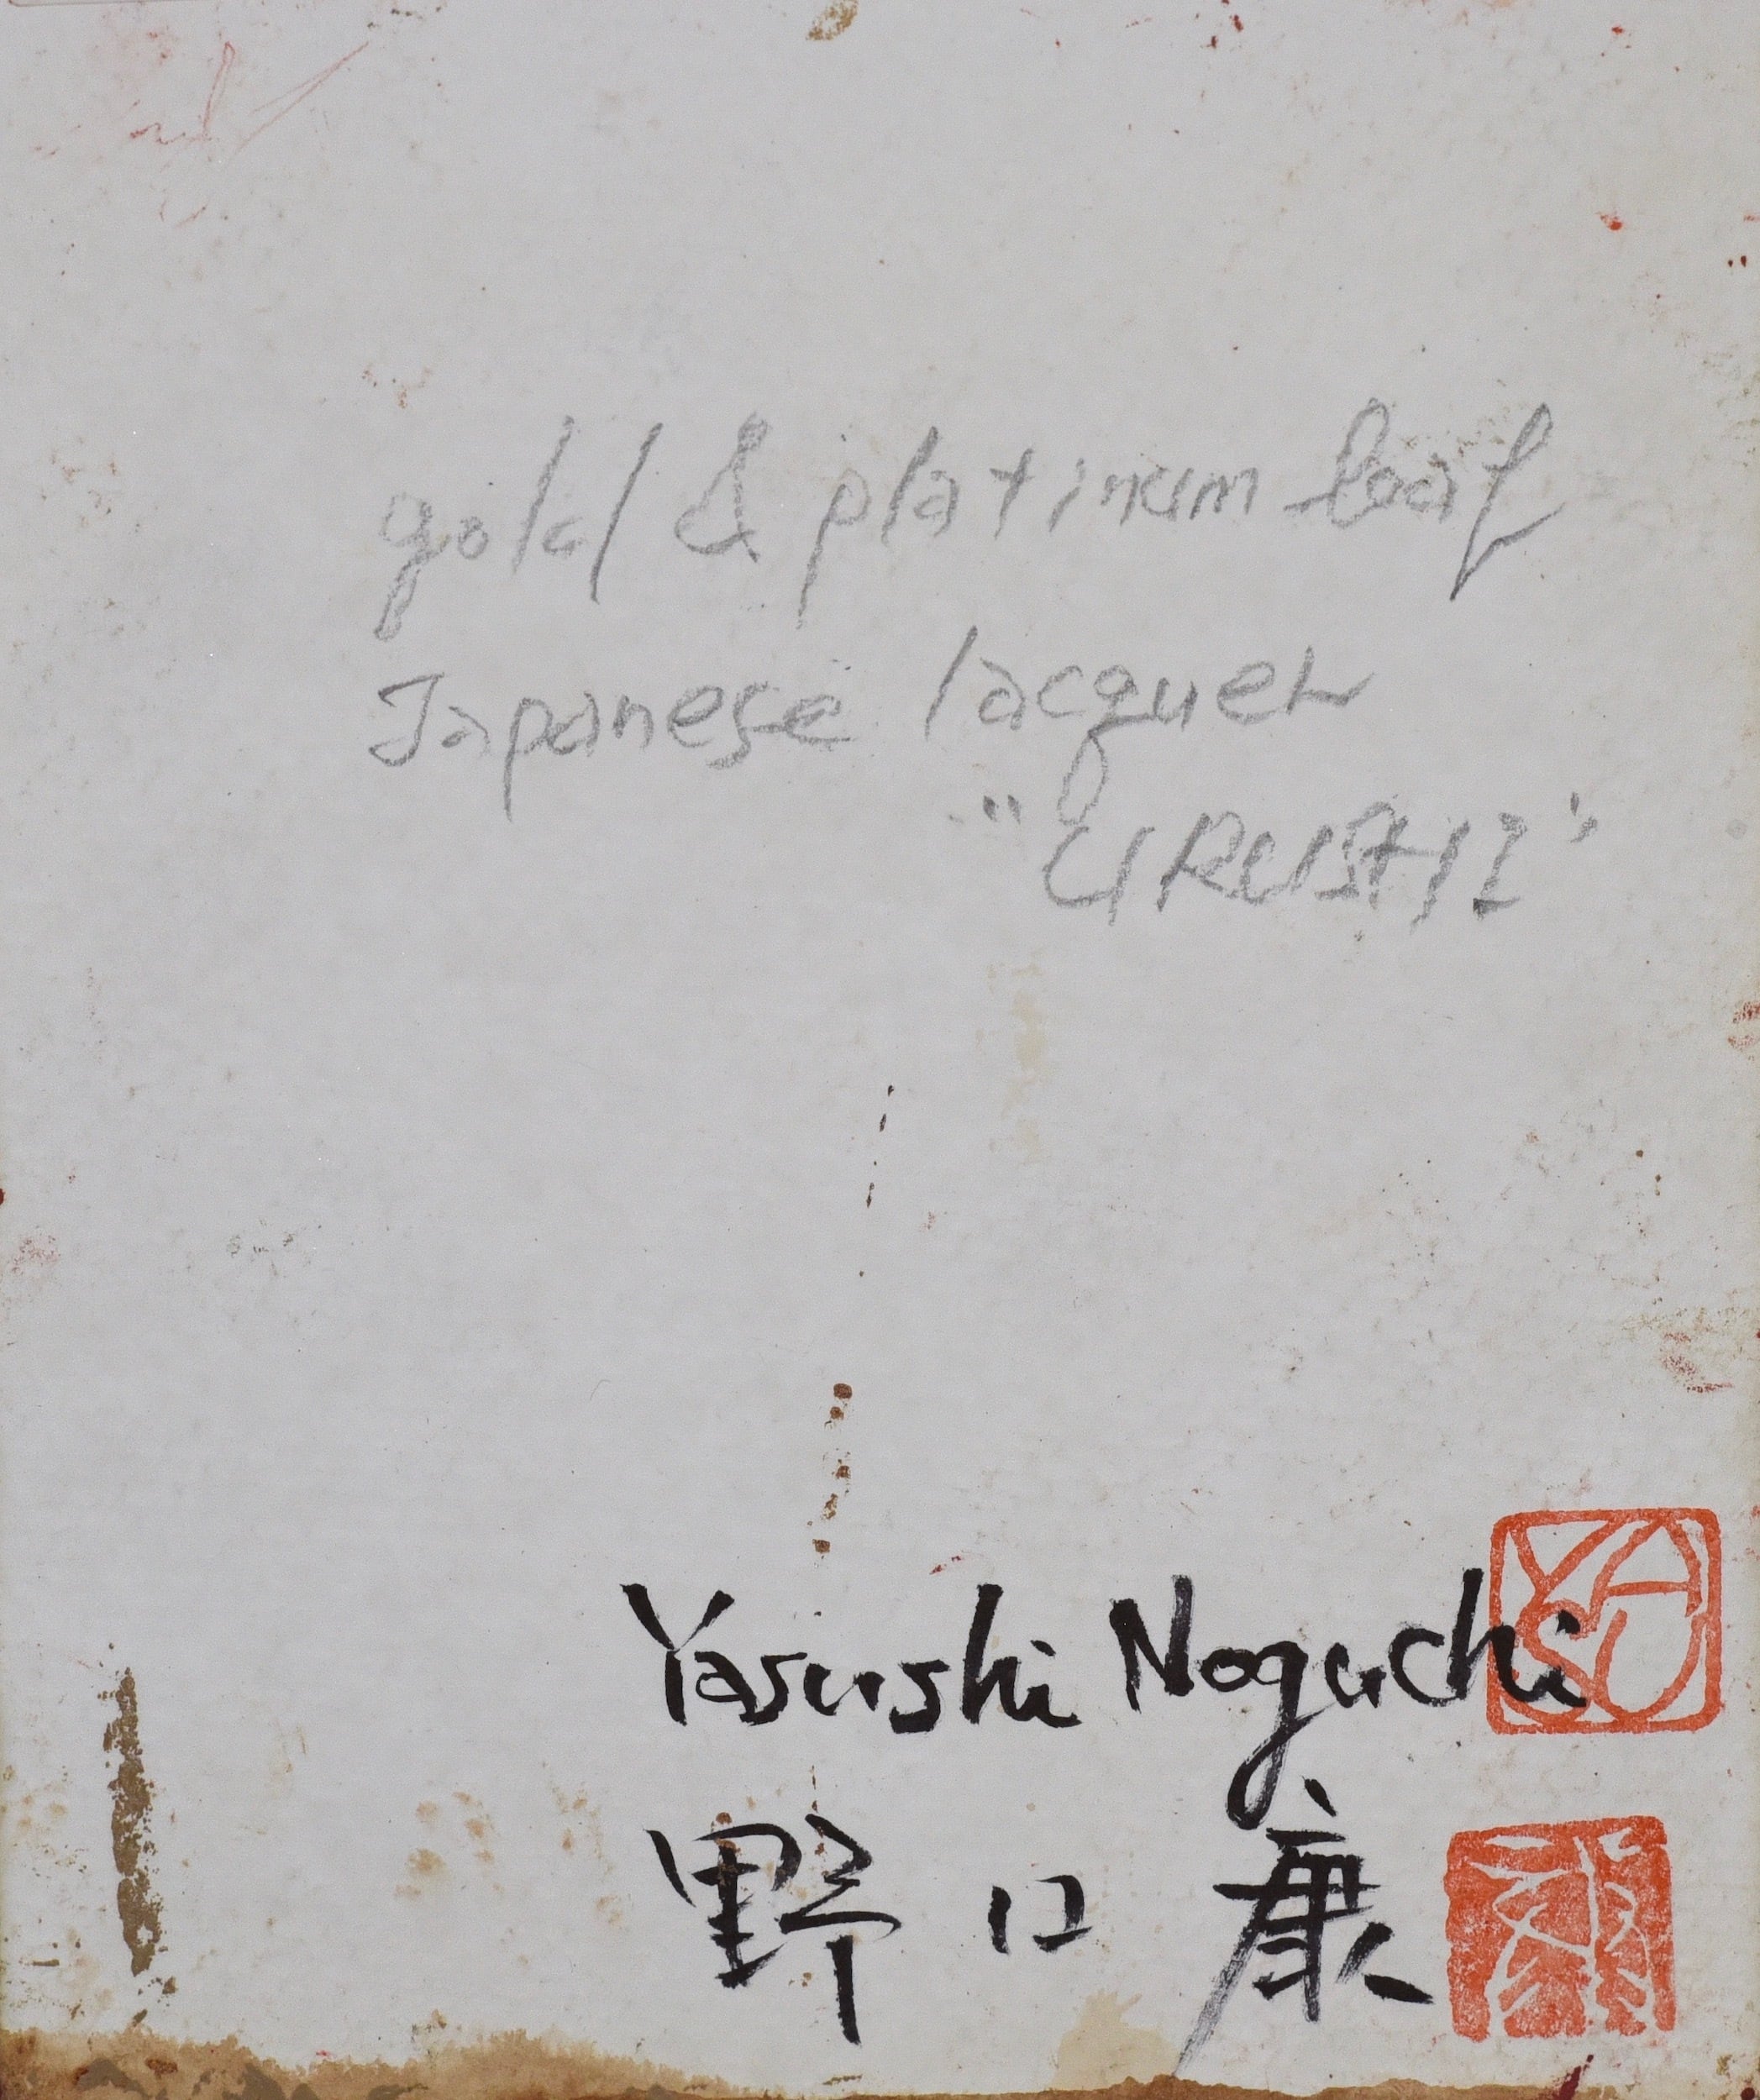 gold & platinum leaf
Japanese lacquer
"URUSHI"
YASU
Yasushi Noguchi
野口康